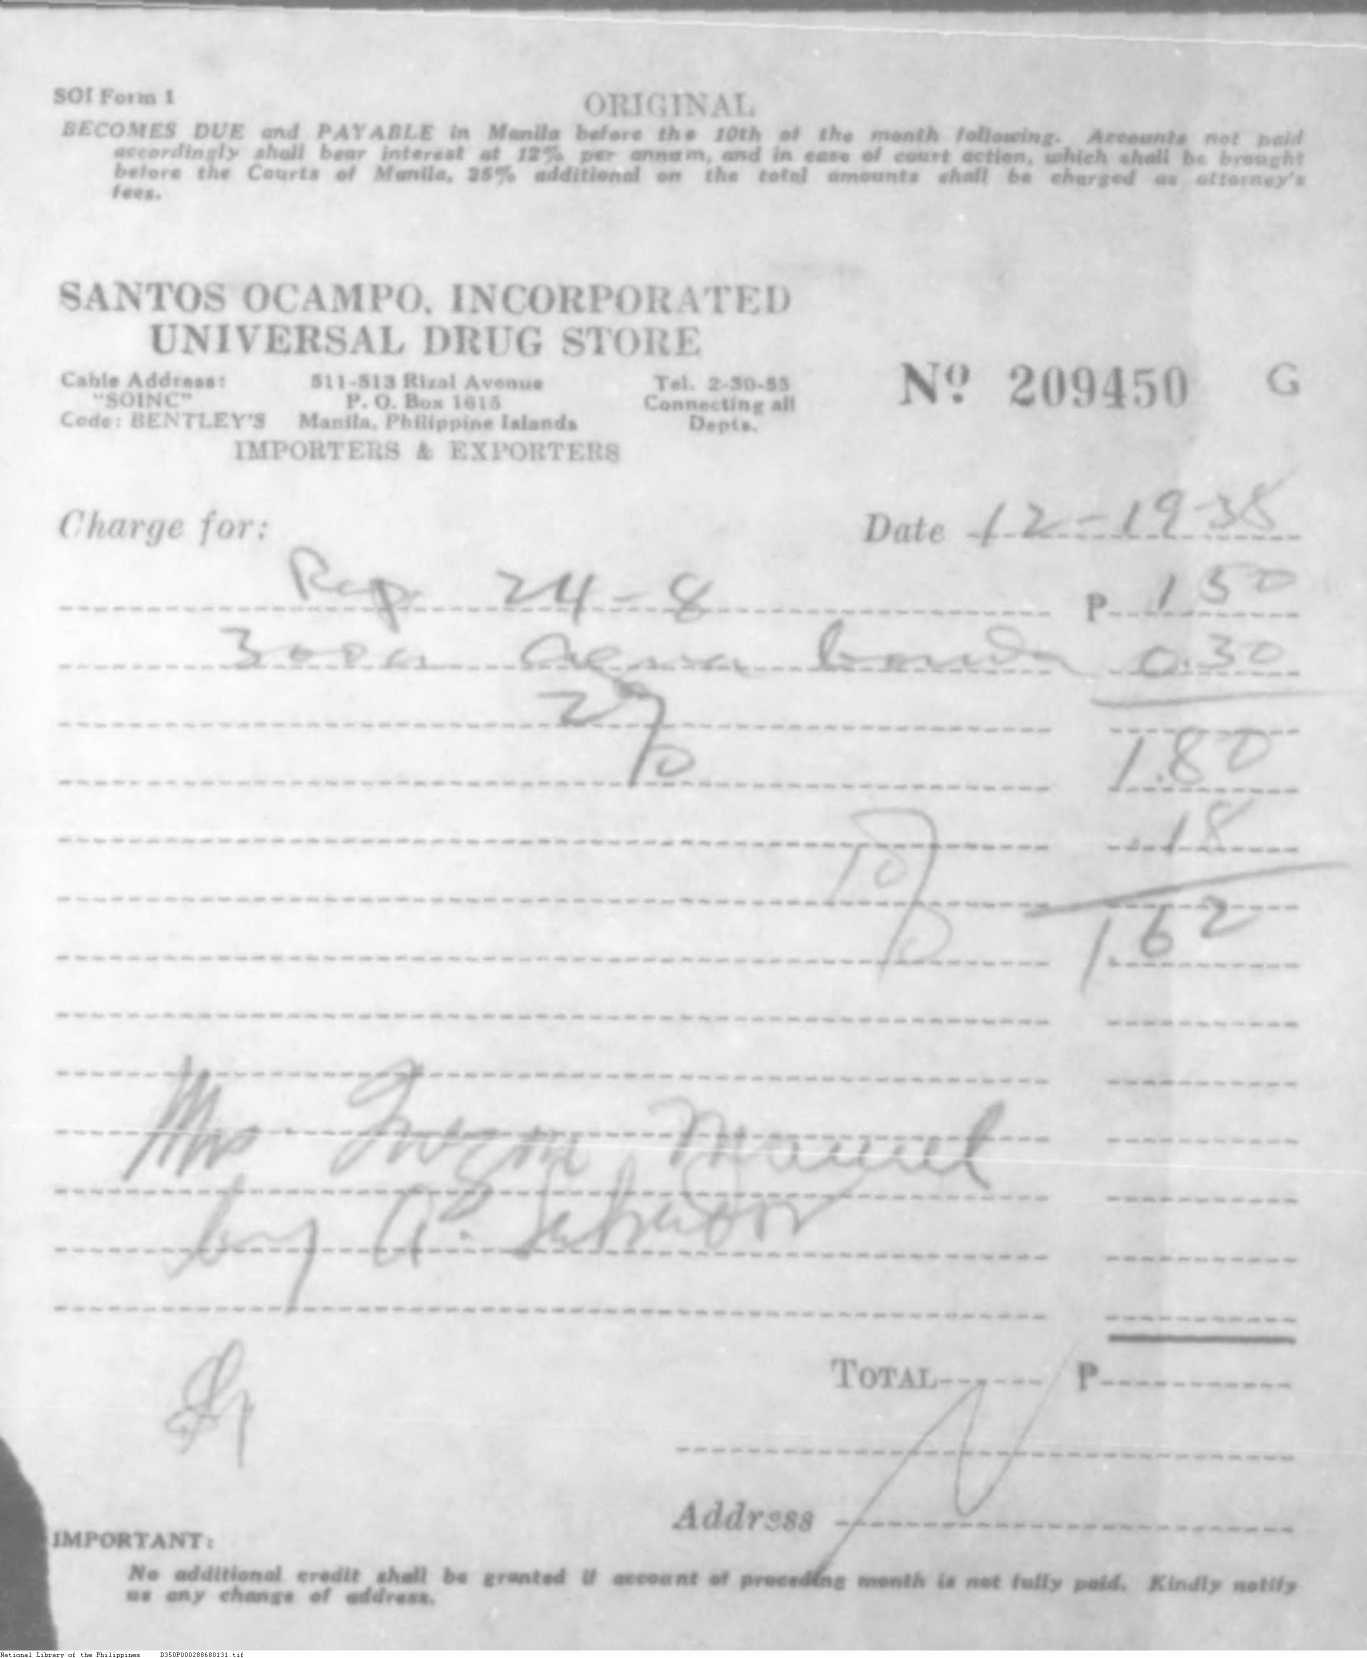 SOI Form 1
ORIGINAL
BECOMES DUE and PAYABLE in Manila before the 10th of the month following. Accounts not paid
accordingly shall bear interest at 12% per annum, and in case of court action, which shall be brought
before the Courts of Manila, 25% additional on the total amounts shall be charged as attorney's
fees.
SANTOS OCAMPO, INCORPORATED
UNIVERSAL DRUG STORE
Cable Address: 511-513 Rizal Avenue Tel. 2-30-55
"SOINC" P. O. Box 1615 Connecting all
Code: BENTLEY'S Manila, Philippine Islands Depts.
IMPORTERS & EXPORTERS
Nº 209450 G
Charge for: Date 12-19-38
Rep 24-8 P 1.50
Agua 0.30
2%
1.80
10% .18
1.62
Mrs. Manuel
by A. Salvador
TOTAL P
Address
IMPORTANT:
No additional credit shall be granted if account of preceding month is not fully paid. Kindly notify
us any change of address.
National Library of the Philippines D350P000288680131.tif